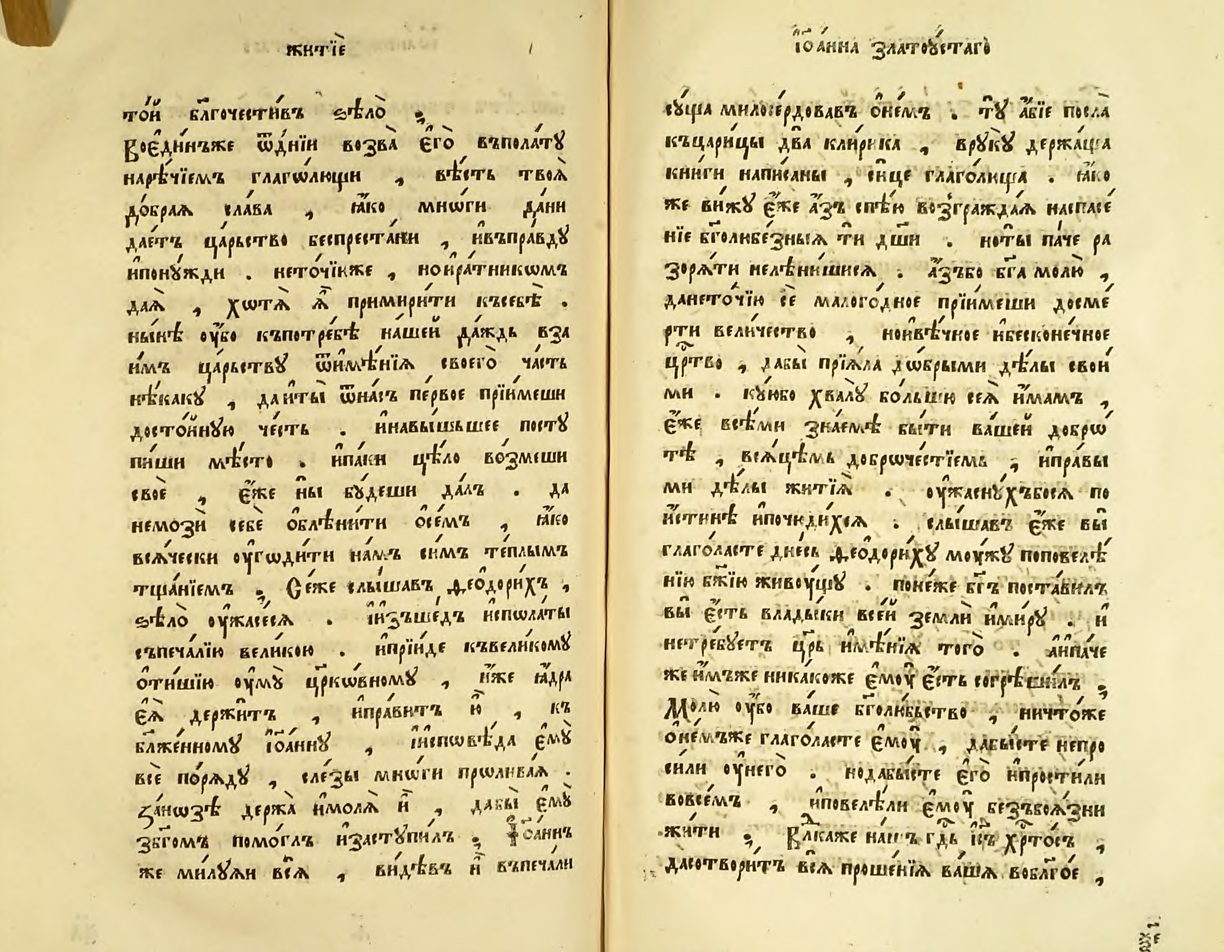 житїѐ
то́й бл҃гоче́стивъ ѕѣлѡ̀ ⁏
Воеди́нъже ѿднїи возва̀ є҆го̀ въпола́ту
наре́чїемъ глаго́лющи , вѣ́сть твоѧ̀
до́браѧ сла́ва , ꙗ҆́ко мнѡ́ги да́ни
дае́тъ ца́рьство беспреста́ни , и҆въпра́вду
и҆пону́жди . нето́чїюже , нои҆ра́тникѡмъ
даѧ̀ , хотѧ̀ ѧ҆̀ примири́ти къ себѣ̀ .
ны́нѣ оу҆́бо къпотре́бѣ на́шей да́ждь вза
и́мъ ца́рьству ѿимѣ́нїѧ своего̀ ча́сть
нѣ́каку , да и҆ты̀ ѿна́съ пе́рвое прїи́меши
досто́йную че́сть . и҆навы́шьшее посту
пи́ши мѣ́сто . и҆па́ки цѣ́ло во́змеши
своѐ , є҆́же ны̀ бу́деши да́лъ . да
немозѝ себѐ о҆блѣни́ти о҆се́мъ , ꙗ҆́ко
всѧ́чески оу҆годи́ти на́мъ си́мъ те́плымъ
тща́нїемъ ⁏ Се́же слы́шавъ ѳео́дорихъ ,
ѕѣлѡ̀ оу҆жасе́сѧ . и҆и҆зъше́дъ и҆спола́ты
съпеча́лїю вели́кою . и҆прїи́де къвели́кому
о҆ти́шїю оу҆му̀ цр҃кѡ́вному , и҆́же ꙗ҆́дра
є҆ѧ̀ держи́тъ , и҆пра́витъ ю҆̀ , къ
блаже́нному і҆ѡа́нну , и҆и҆сповѣ́да є҆му̀
всѐ по́рѧду , сле́зы мнѡ́ги пролива́ѧ .
За́нозѣ держа̀ и҆молѧ̀ и҆̀ , дабы̀ є҆му̀
зб҃гомъ помо́глъ и҆заступи́лъ ⁏ І҆ѡа́ннъ
же ми́луѧи всѧ̀ , ви́дѣвъ и҆̀ въпеча́ли
і҆ѡа́нна златоꙋ́стаго̀
су́ща милосе́рдовавъ о҆не́мъ . ту̀ а҆́бїе посла̀
къцари́цы два̀ кли́рика , вру́ку держа́ща
кни́ги напи́саны , си́це глаго́лища . ꙗ҆́ко
же ви́жу є҆́же а҆́зъ спѣ́ю возгражда́ѧ наспасе́
нїе бг҃олюбе́зныѧ тѝ дш҃и . но ты̀ па́че ра
зорѧ́ти нелѣни́шисѧ . а҆́зъбо бг҃а молю̀ ,
дането́чїю сѐ малого́дное прїи́меши досме́
рти вели́чество , нои҆вѣ́чное и҆бесконе́чное
цр҃тво , дабы̀ прїѧ́ла до́брыми дѣ́лы свои́
ми . ку́юбо хвалу̀ бо́льшю сеѧ̀ и҆́мамъ ,
є҆́же всѣ́ми зна́емѣ бы́ти ва́шей добро
тѣ̀ , всѧ́цѣмъ доброче́стїемъ , и҆пра́вы
ми дѣ́лы житїѧ̀ . оу҆жасну́хъбосѧ по
и҆́стинѣ и҆почиди́хсѧ . слы́шавъ є҆́же вы̀
глаго́ласте дне́сь ѳеодори́ху моу́жу поповелѣ́
нїю бж҃їю живоу́щу . поне́же бг҃ъ поста́вилъ
вы̀ є҆́сть влады́ки все́й землѝ и҆ми́ру . и҆
нетре́буетъ цр҃ь и҆мѣ́нїѧ того̀ . а҆и҆па́че
же и҆́мъже никако́же є҆моу̀ є҆́сть согрѣши́лъ ⁏
Молю̀ оу҆́бо ва́ше бг҃олю́бьство , ничто́же
о҆не́мъже глаго́ласте є҆моу̀ , дабы́сте непро
си́ли оу҆него̀ . нодабы́сте є҆го̀ и҆прости́ли
вовсе́мъ , и҆повелѣ́ли є҆моу̀ безъбоѧ́зни
жи́ти ⁏ Вл҃каже на́шъ гд҃ь і҆с҃ъ хр҃то́съ ,
дасотвори́тъ всѧ̀ проше́нїѧ ва́шѧ вобл҃го́е ,